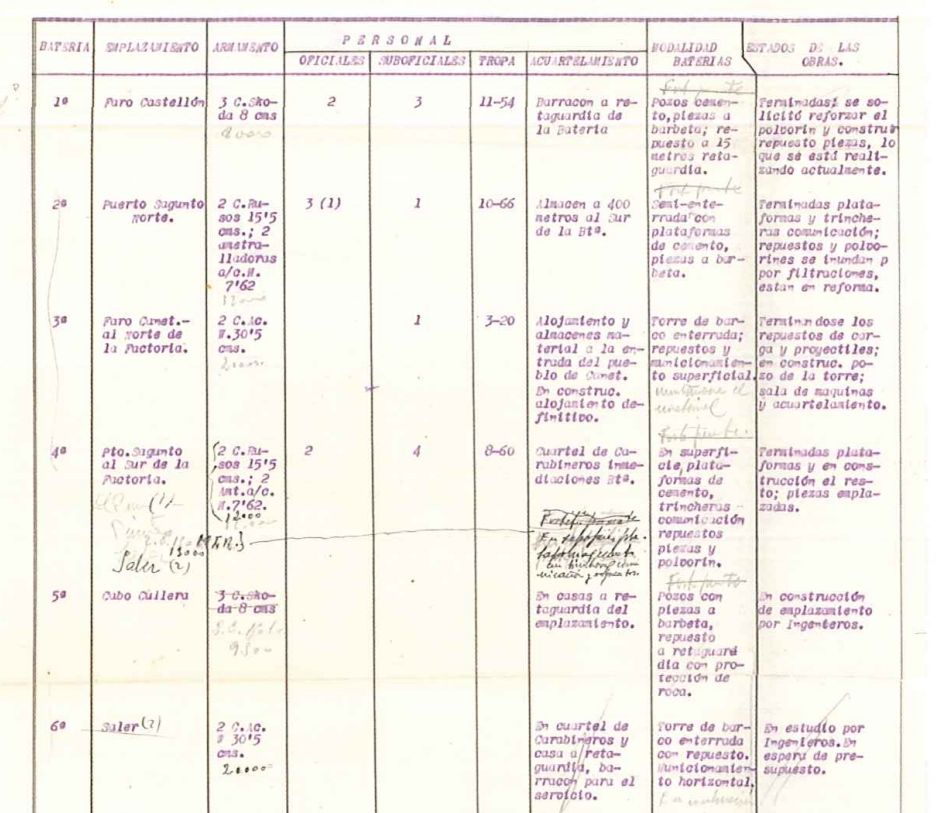 PERSONAL
BATERIA EMPLAZAMIENTO ARMAMENTO OFICIALES SUBOFICIALES TROPA ACUARTELAMIENTO MODALIDAD BATERIAS ESTADOS DE LAS OBRAS.
1ª
Faro Castellón
3 C.Sko-
da 8 cms
2
3
11-54
Barracon a re-
taguardia de
la Bateria
Pozos cemen-
to,piezas a
barbeta; re-
puesto a 15
metros reta-
guardia.
Terminadas; se so-
licitó reforzar el
polvorin y construir
repuesto piezas, lo
que se está reali-
zando actualmente.
2ª
Puerto Sagunto
Norte.
2 C.Ru-
sos 15'5
cms.; 2
ametra-
lladoras
a/c.M.
7'62
3 (1)
1
10-66
Almacen a 400
metros al Sur
de la Btª.
Semi-ente-
rrada con
plataformas
de cemento,
piezas a bar-
beta.
Terminadas plata-
formas y trinche-
ras comunicación;
repuestos y polvo-
rines se inundan p
por filtraciones,
estan en reforma.
3ª
Faro Canet.-
al Norte de
la Factoria.
2 C.Ac.
V.30'5
cms.
1
3-20
Alojamiento y
almacenes ma-
terial a la en-
trada del pue-
blo de Canet.
En construc.
alojamiento de-
finitivo.
Torre de bar-
co enterrada;
repuestos y
municionamien-
to superficial.
Terminandose los
repuestos de car-
ga y proyectiles;
en construc. po-
zo de la torre;
sala de maquinas
y acuartelamiento.
4ª
Pto.Sagunto
al Sur de la
Factoria.
2 C.Ru-
sos 15'5
cms.; 2
Amt.a/c.
M.7'62.
12000
2
4
8-60
Cuartel de Ca-
rabineros inme-
diaciones Btª.
En superfi-
cie,plata-
formas de
cemento,
trincheras
comunicación
repuestos
piezas y
polvorin.
Terminadas plata-
formas y en cons-
trucción el res-
to; piezas empla-
zadas.
13000
Saler (2)
5ª
Cabo Cullera
3 C.Sko-
da 8 cms
En casas a re-
taguardia del
emplazamiento.
Pozos con
piezas a
barbeta,
repuesto
a retaguard
dia con pro-
tección de
roca.
En construcción
de emplazamiento
por Ingenieros.
6ª
Saler (2)
2 C.Ac.
V 30'5
cms.
20000
En cuartel de
Carabineros y
casa a reta-
guardia, ba-
rracon para el
servicio.
Torre de bar-
co enterrada
con repuesto.
Municionamien-
to horizontal.
En estudio por
Ingenieros.En
espera de pre-
supuesto.